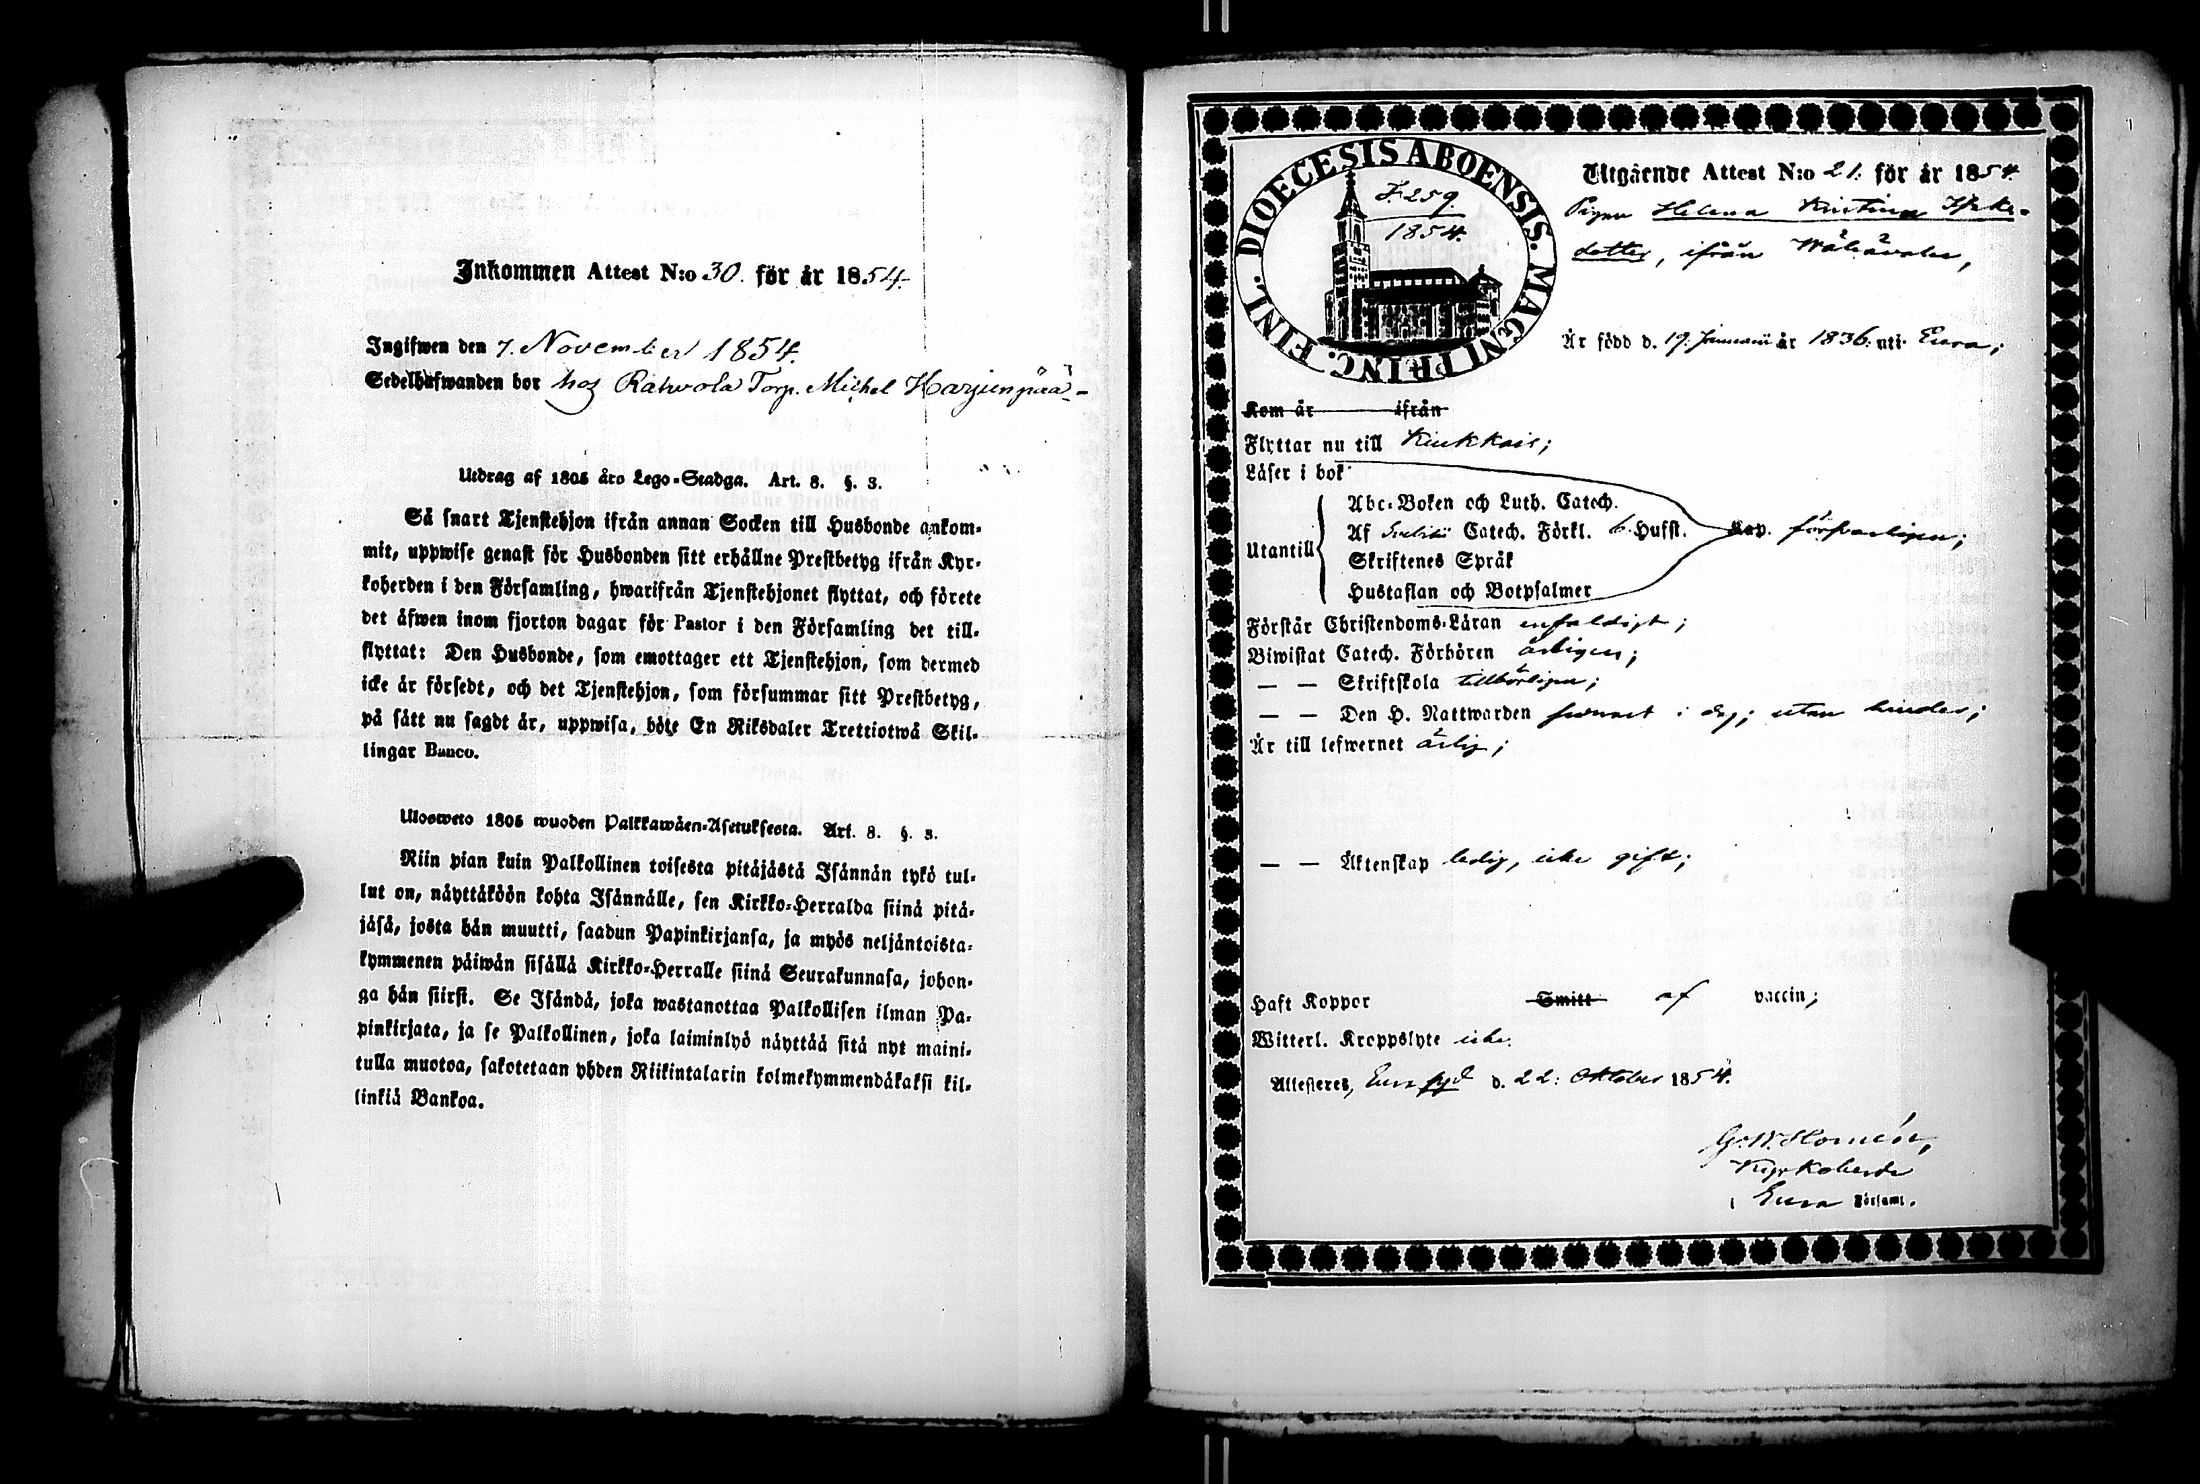 Inkommen Attest N:o 30. för år 1854.
Ingifwen den 7. November 1854.
Sedelhafwanden bor hos Rahvola Torp. Michel Harjunpää-
Utdrag af 1805 års Lego-Stadga. Art. 8. §. 3.
Så snart Tjenstehjon ifrån annan Socken till Husbonde ankom-
mit, uppwise genast för Husbonden sitt erhållne Prestbetyg ifrån Kyr-
koherden i den Församling, hwarifrån Tjenstehjonet flyttat, och förete
det äfwen inom fjorton dagar för Pastor i den Församling det till-
flyttat: Den Husbonde, som emottager ett Tjenstehjon, som dermed
icke är försedt, och det Tjenstehjon, som försummar sitt Prestbetyg,
på sätt nu sagdt är, uppwisa, böte En Riksdaler Trettiotwå Skil-
lingar Banco.
Ulosweto 1805 wuoden Palkkawäen-Asetuksesta. Art. 8. §. 3.
Niin pian kuin Palkollinen toisesta pitäjästä Isännän tykö tul-
lut on, näyttäköön kohta Isännälle, sen Kirkko-Herralda siinä pitä-
jäsä, josta hän muutti, saadun Papinkirjansa, ja myös neljäntoista-
kymmenen päiwän sisällä Kirkko-Herralle siinä Seurakunnasa, johon-
ga hän siirst. Se Isändä, joka wastanottaa Palkollisen ilman Pa-
pinkirjata, ja se Palkollinen, joka laiminlyö näyttää sitä nyt maini-
tulla muotoa, sakotetaan yhden Riikintalarin kolmekymmendäkaksi kil-
linkiä Bankoa.
DIOECESIS ABOENSIS. MAGNI PRINC. FINL.
F. 259.
1854.
Utgående Attest N:o 21. för år 1854.
Pigan Helena Kristina
dotter, ifrån
Är född d. 19. Januarii år 1836. uti Eura;
Kom år ifrån
Flyttar nu till Kiukkais;
Läser i bok
Abc-Boken och Luth. Catech.
Utantill Af Svebilii Catech. Förkl. 6 Hufst. Kap. försvarligen;
Skriftenes Språk
Hustaflan och Botpsalmer
Förstår Christendoms-Läran enfaldigt;
Biwistat Catech. Förhören årligen;
— — Skriftskola tillbörligen;
— — Den H. Nattwarden senast i dag; utan hinder;
Är till lefwernet ärlig;
— — Äktenskap ledig, icke gift;
Haft Koppor Smitt af vaccin;
Witterl. Kroppslyte icke.
Attesteres, Eura d. 22. Oktober 1854.
G. W. Homén,
Kyrkoherde
i Eura Församl.